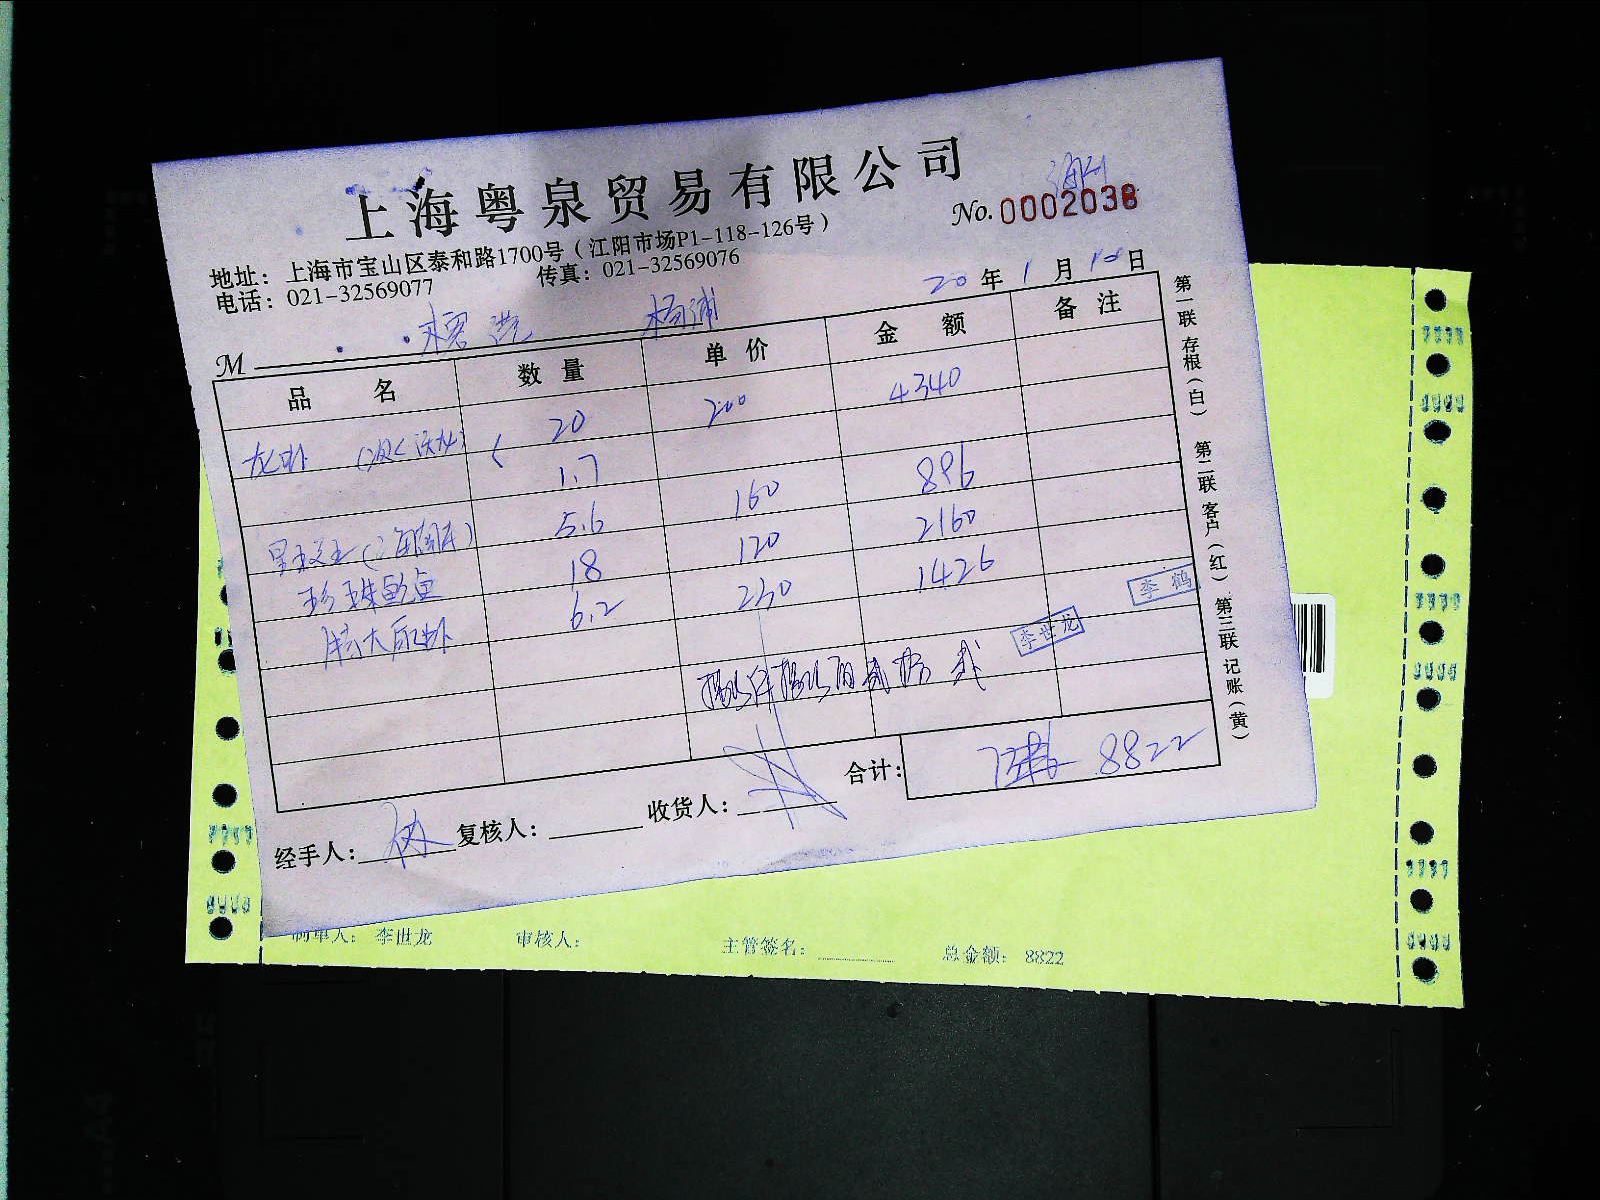 上海粤泉贸易有限公司
No. 0002038
地址：上海市宝山区泰和路1700号（江阳市场P1-118-126号）
电话：021-32569077 传真：021-32569076
20 年 1 月 10 日
M 杨浦
品 名 数 量 单 价 金 额 备 注
龙虾 20 200 4340
1.7
5.6 160 896
珍珠鲍鱼 18 120 2160
6.2 230 1426
李世龙
李鹤
合计： 8822
经手人： 复核人： 收货人：
第一联 存根（白） 第二联 客户（红） 第三联 记账（黄）
制单人： 李世龙 审核人： 主管签名： 总金额： 8822